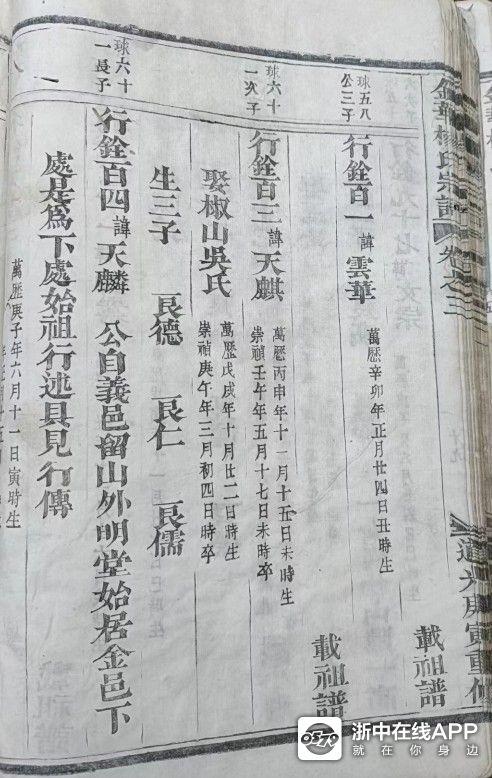 金華楊氏宗譜 卷之三
道光庚寅重修
球五八
公三子
行銓百一 諱 雲華
萬歷辛卯年正月廿四日丑時生
載祖譜
球六十
一次子
行銓百三 諱 天麒
萬歷丙申年十一月十五日未時生
崇禎壬午年五月十七日未時卒
載祖譜
娶椒山吳氏
萬歷戊戌年十月廿二日時生
崇禎庚午年三月初四日時卒
生三子 良德 良仁 良儒
球六十
一長子
行銓百四 諱 天麟 公自義邑留山外明堂始居金邑下
處是爲下處始祖行述具見行傳
萬歷庚子年六月十一日寅時生
浙中在线APP
就在你身边